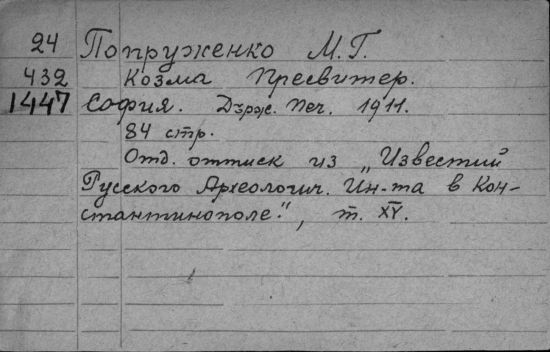 24 Попруженко М.Г.
432 Козма Пресвитер.
1447 София. Държ. печ. 1911.
84 стр.
Отд. оттиск из „Известий
Русского Археологич. Ин-та в Кон-
стантинополе", т. XV.